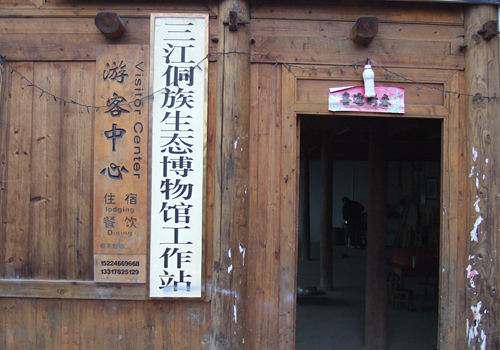 游客中心
Visitor Center
住宿
lodging
餐饮
Dining
15224669668
13317825129
三江侗族生态博物馆工作站